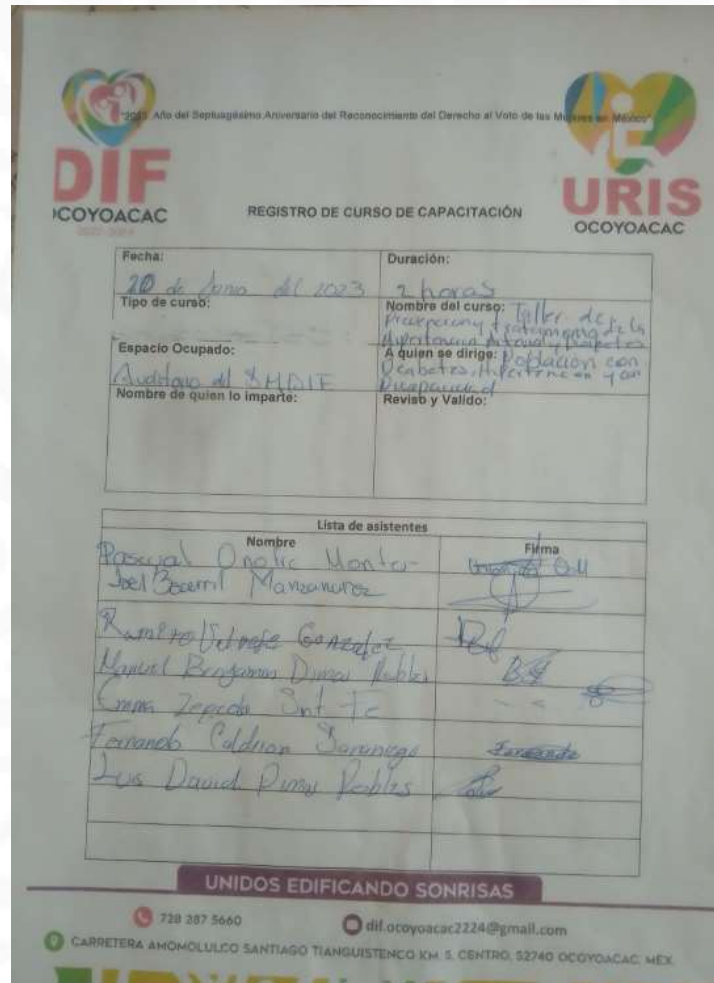 "2023. Año del Septuagésimo Aniversario del Reconocimiento del Derecho al Voto de las Mujeres en México"
DIF
OCOYOACAC
2022-2024
URIS
OCOYOACAC
REGISTRO DE CURSO DE CAPACITACIÓN
Fecha:
20 de Junio del 2023
Duración:
2 horas
Tipo de curso:
Nombre del curso: Taller de
y tratamiento de la
Arterial y
Espacio Ocupado:
Auditorio del SMDIF
A quien se dirige: Población con
Diabetes, y con
Nombre de quien lo imparte:
Reviso y Valido:
Lista de asistentes
Nombre
Firma
Pascual
Joel Becerril
Ramiro Gonzalez
Manuel Benjamin Robles
Emma Zepeda
Fernando Calderon
Fernando
Luis David Robles
UNIDOS EDIFICANDO SONRISAS
728 287 5660
dif.ocoyoacac2224@gmail.com
CARRETERA AMOMOLULCO SANTIAGO TIANGUISTENCO KM. 5, CENTRO, 52740 OCOYOACAC, MÉX.